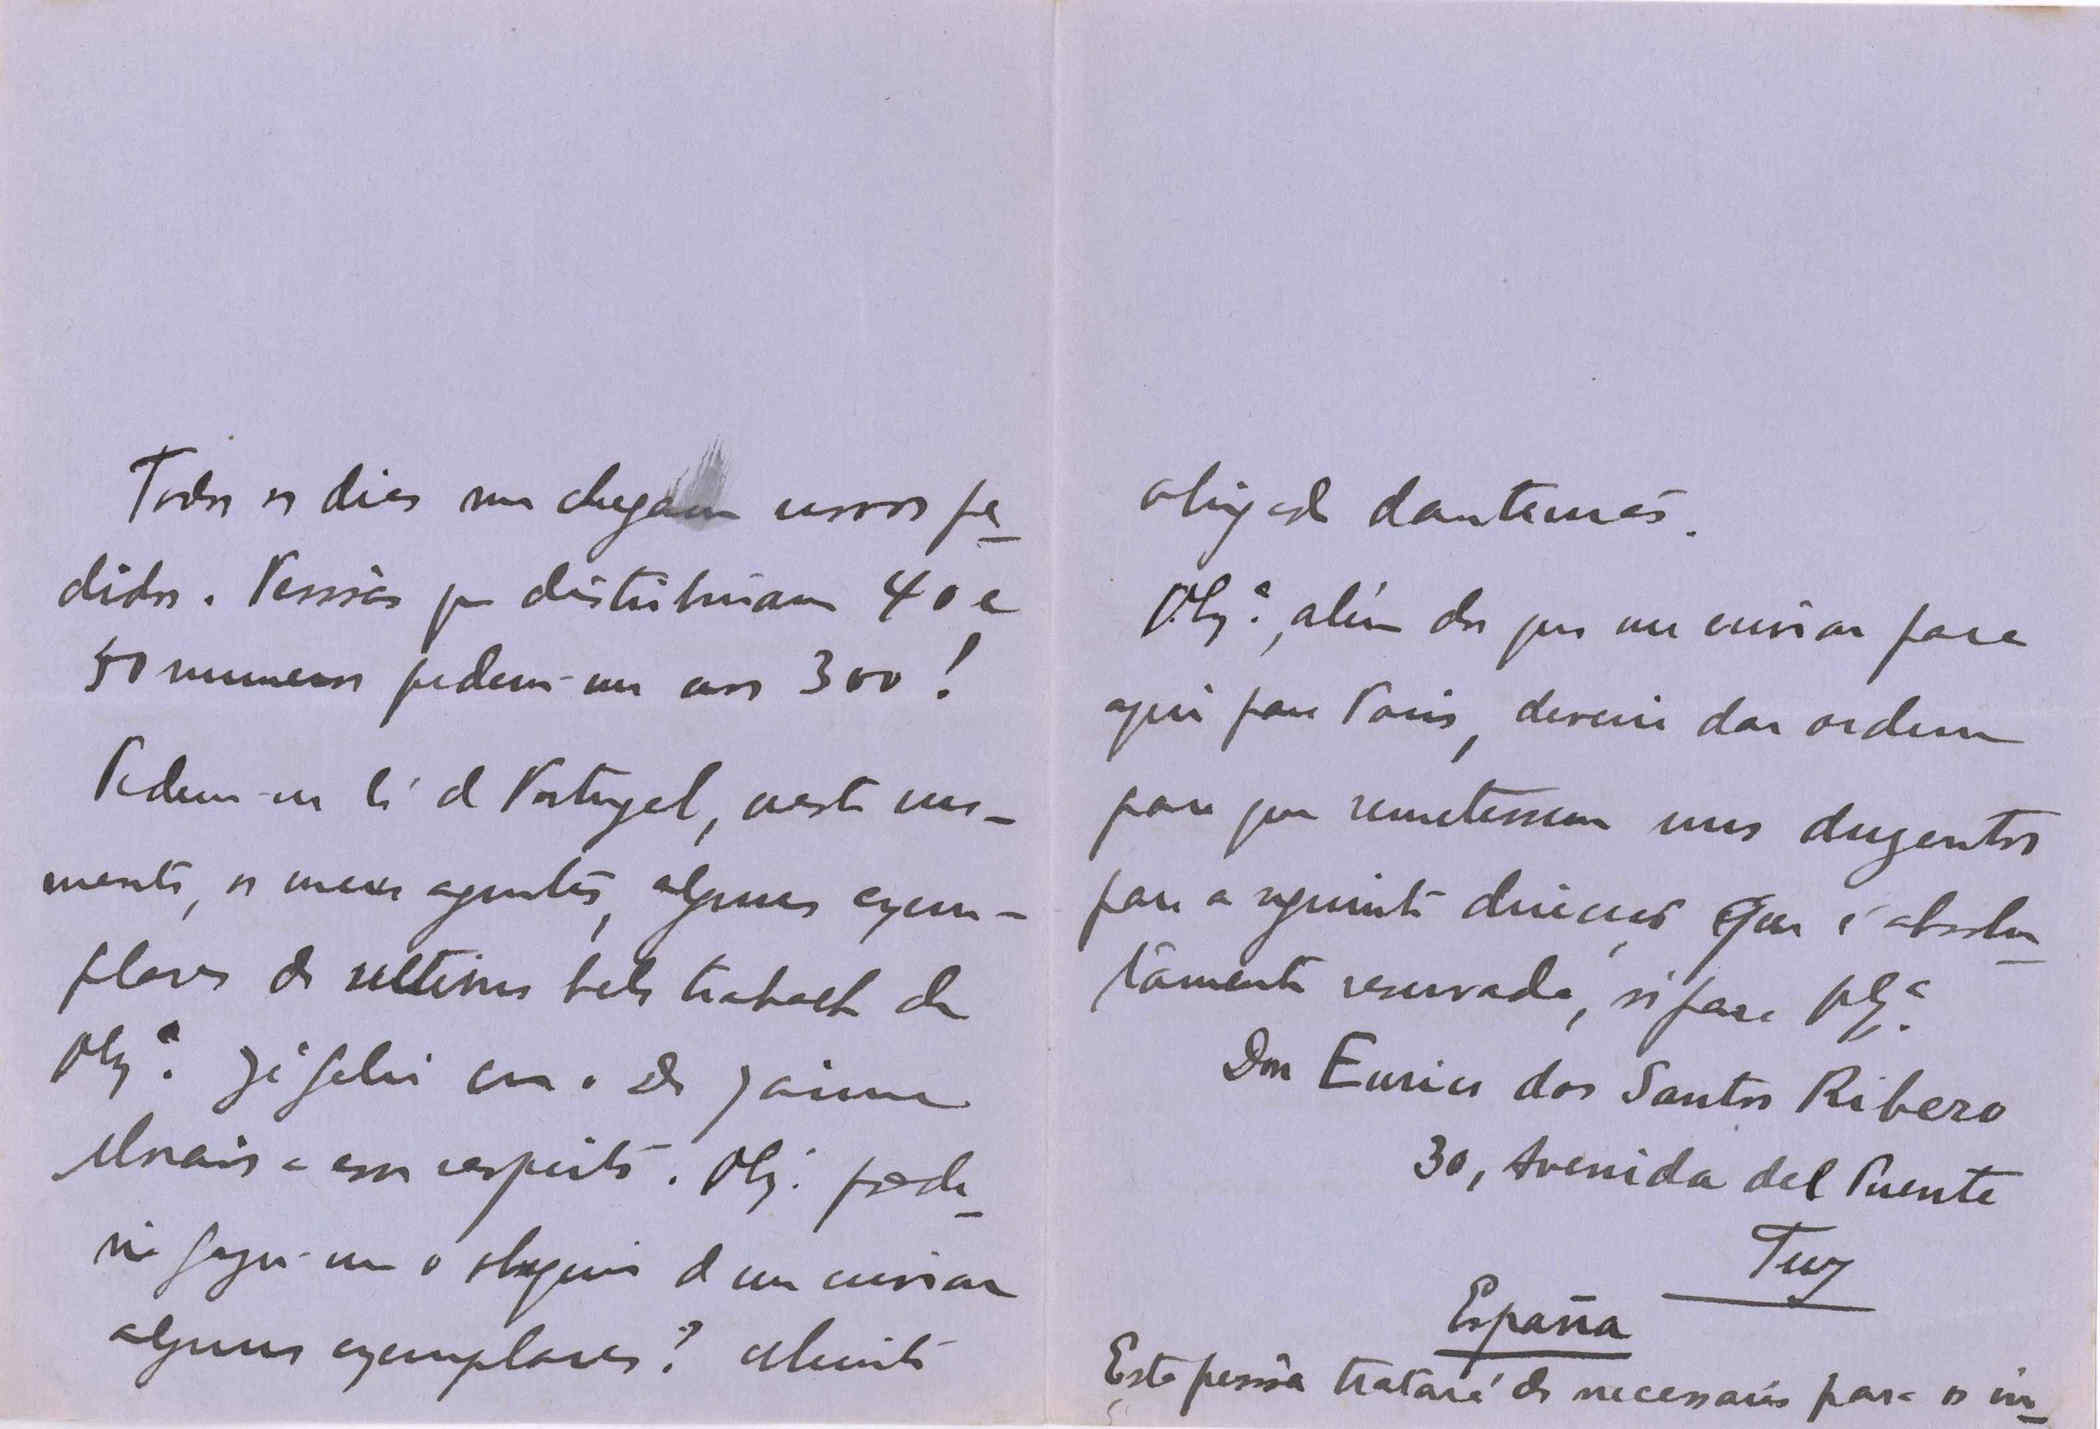 Todos os dias me chegam novos pe-
didos. Pessoas que distribuiam 40 e
50 numeros pedem-me aos 300!
Pedem-me lá de Portugal, neste mo-
mento, os meus agentes, alguns exem-
plares do ultimo belo trabalho de
V. Ex.ª Já falei com o Dr Jaime
Morais a esse respeito. V. Ex.ª pode-
ria fazer-me o obsequio de me enviar
alguns exemplares? Muito
obrigado dantemão.
V. Ex.ª, além dos que me enviar para
aqui para Paris, deveria dar ordem
para que remetessem uns duzentos
para a seguinte direcção, que é absolu-
tamente reservada, só para V. Ex.ª
Don Eurico dos Santos Ribero
30, Avenida del Puente
Tuy
España
Esta pessôa tratará do necessario para os in-